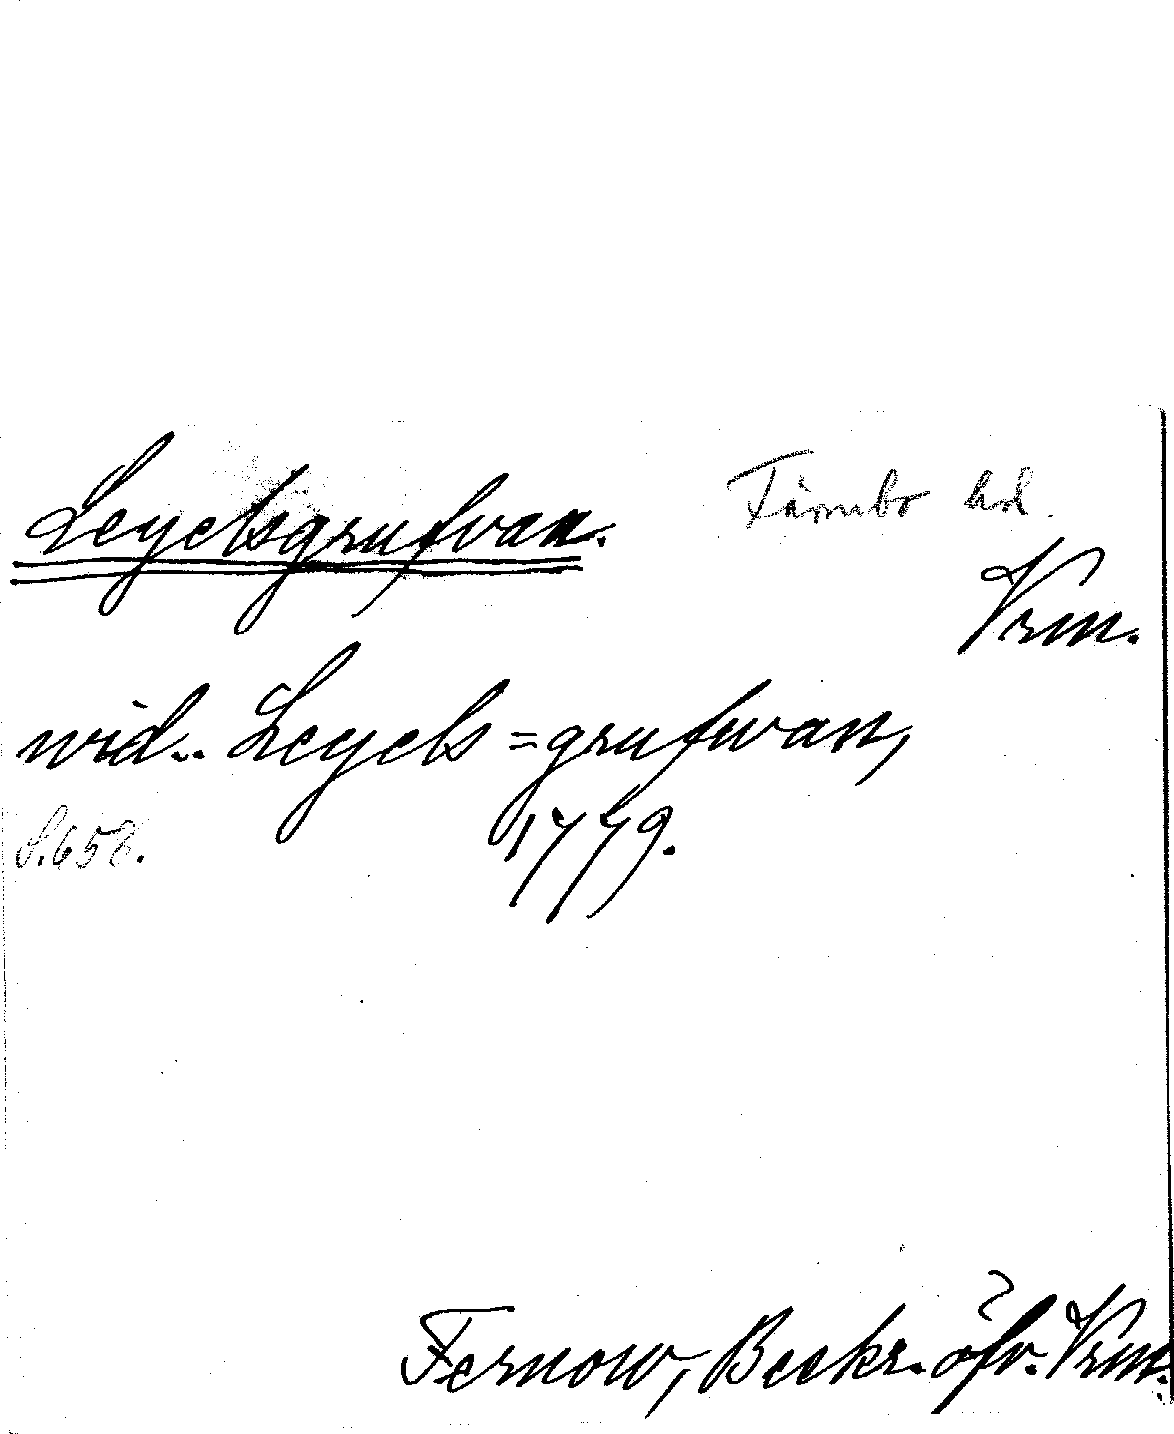 Leyelsgrufvan.
Färnebo hd.
Vrm.
wid.. Leyels=grufwan,
1779.
S. 658.
Fernow, Beskr. öfv. Vrm.